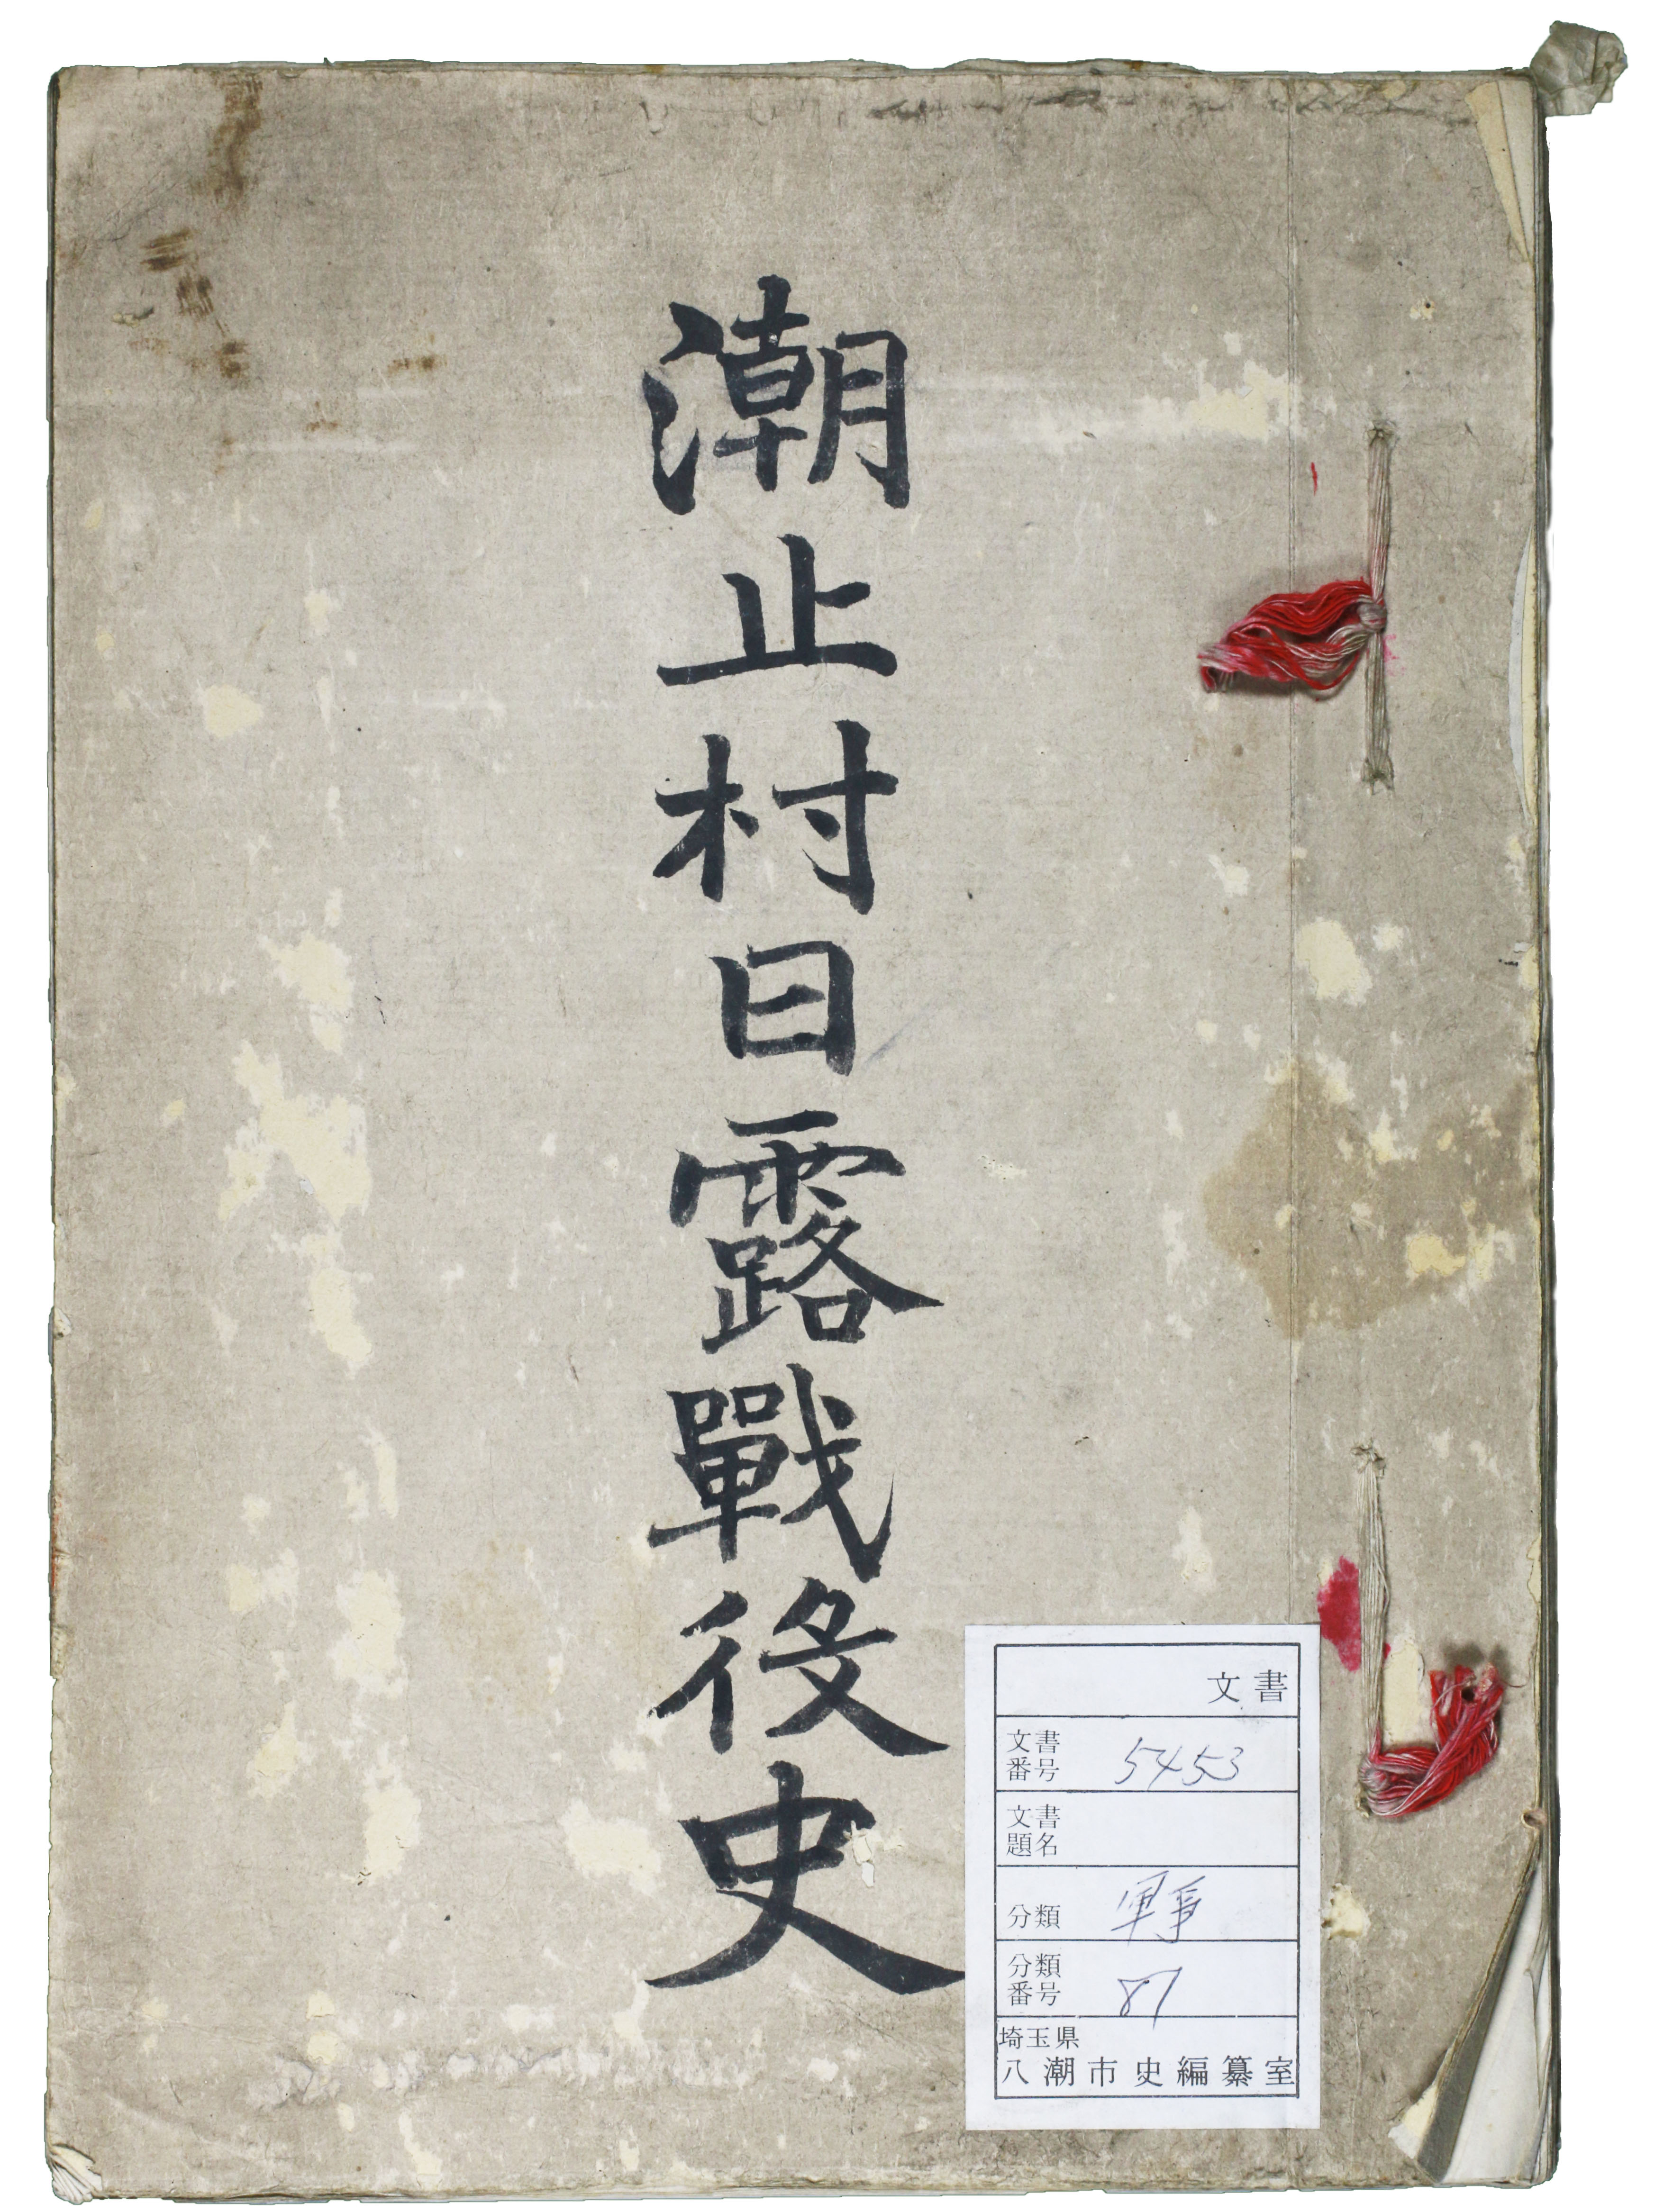 潮止村日露戰役史
文書
文書番号 5453
文書題名
分類 軍事
分類番号 87
埼玉県
八潮市史編纂室